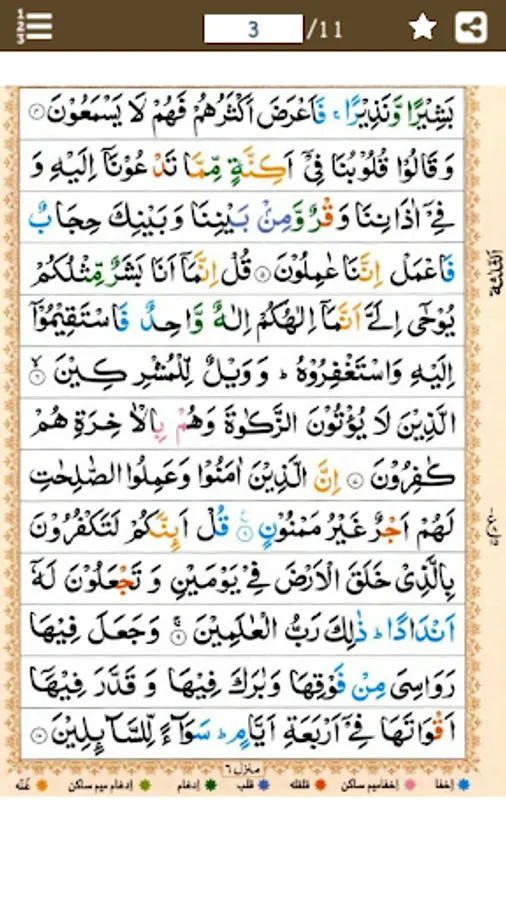 3 /11
بَشِيْرًا وَّنَذِيْرًا ۚ فَاَعْرَضَ اَكْثَرُهُمْ فَهُمْ لَا يَسْمَعُوْنَ ۝۴
وَ قَالُوْا قُلُوْبُنَا فِيْۤ اَكِنَّةٍ مِّمَّا تَدْعُوْنَاۤ اِلَيْهِ وَ
فِيْۤ اٰذَانِنَا وَقْرٌ وَّمِنْۢ بَيْنِنَا وَ بَيْنِكَ حِجَابٌ
فَاعْمَلْ اِنَّنَا عٰمِلُوْنَ ۝۵ قُلْ اِنَّمَاۤ اَنَا بَشَرٌ مِّثْلُكُمْ
يُوْحٰۤى اِلَيَّ اَنَّمَاۤ اِلٰهُكُمْ اِلٰهٌ وَّاحِدٌ فَاسْتَقِيْمُوْۤا
اِلَيْهِ وَاسْتَغْفِرُوْهُ ؕ وَ وَيْلٌ لِّلْمُشْرِكِيْنَ ۝۶ۙ
الَّذِيْنَ لَا يُؤْتُوْنَ الزَّكٰوةَ وَهُمْ بِالْاٰخِرَةِ هُمْ
كٰفِرُوْنَ ۝۷ اِنَّ الَّذِيْنَ اٰمَنُوْا وَعَمِلُوا الصّٰلِحٰتِ
لَهُمْ اَجْرٌ غَيْرُ مَمْنُوْنٍ ۝۸ قُلْ اَىِٕنَّكُمْ لَتَكْفُرُوْنَ
بِالَّذِيْ خَلَقَ الْاَرْضَ فِيْ يَوْمَيْنِ وَ تَجْعَلُوْنَ لَهٗۤ
اَنْدَادًا ؕ ذٰلِكَ رَبُّ الْعٰلَمِيْنَ ۝۹ۚ وَ جَعَلَ فِيْهَا
رَوَاسِيَ مِنْ فَوْقِهَا وَبٰرَكَ فِيْهَا وَ قَدَّرَ فِيْهَاۤ
اَقْوَاتَهَا فِيْۤ اَرْبَعَةِ اَيَّامٍ ؕ سَوَآءً لِّلسَّآىِٕلِيْنَ ۝۱۰
منزل ۶
إخفا إخفامیم ساکن قلقله قلب إدغام إدغام میم ساکن غنّه